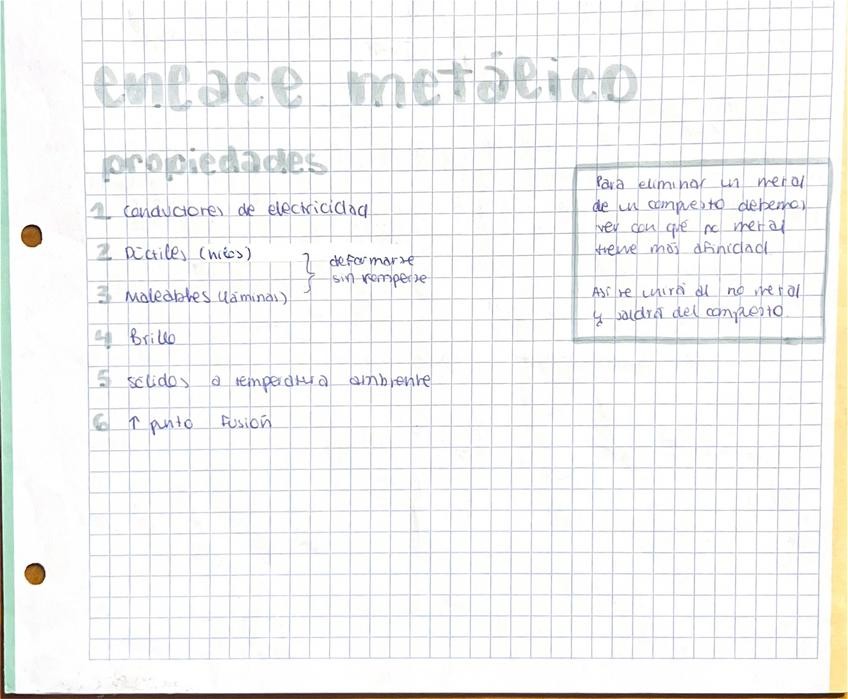 enlace metálico
propiedades
1 conductores de electricidad
2 Dúctiles (hilos)
3 Maleables (láminas)
} deformarse
sin romperse
4 Brillo
5 sólidos a temperatura ambiente
6 ↑ punto fusión
Para eliminar un metal
de un compuesto debemos
ver con qué no metal
tiene más afinidad
Así se unirá al no metal
y saldrá del compuesto.